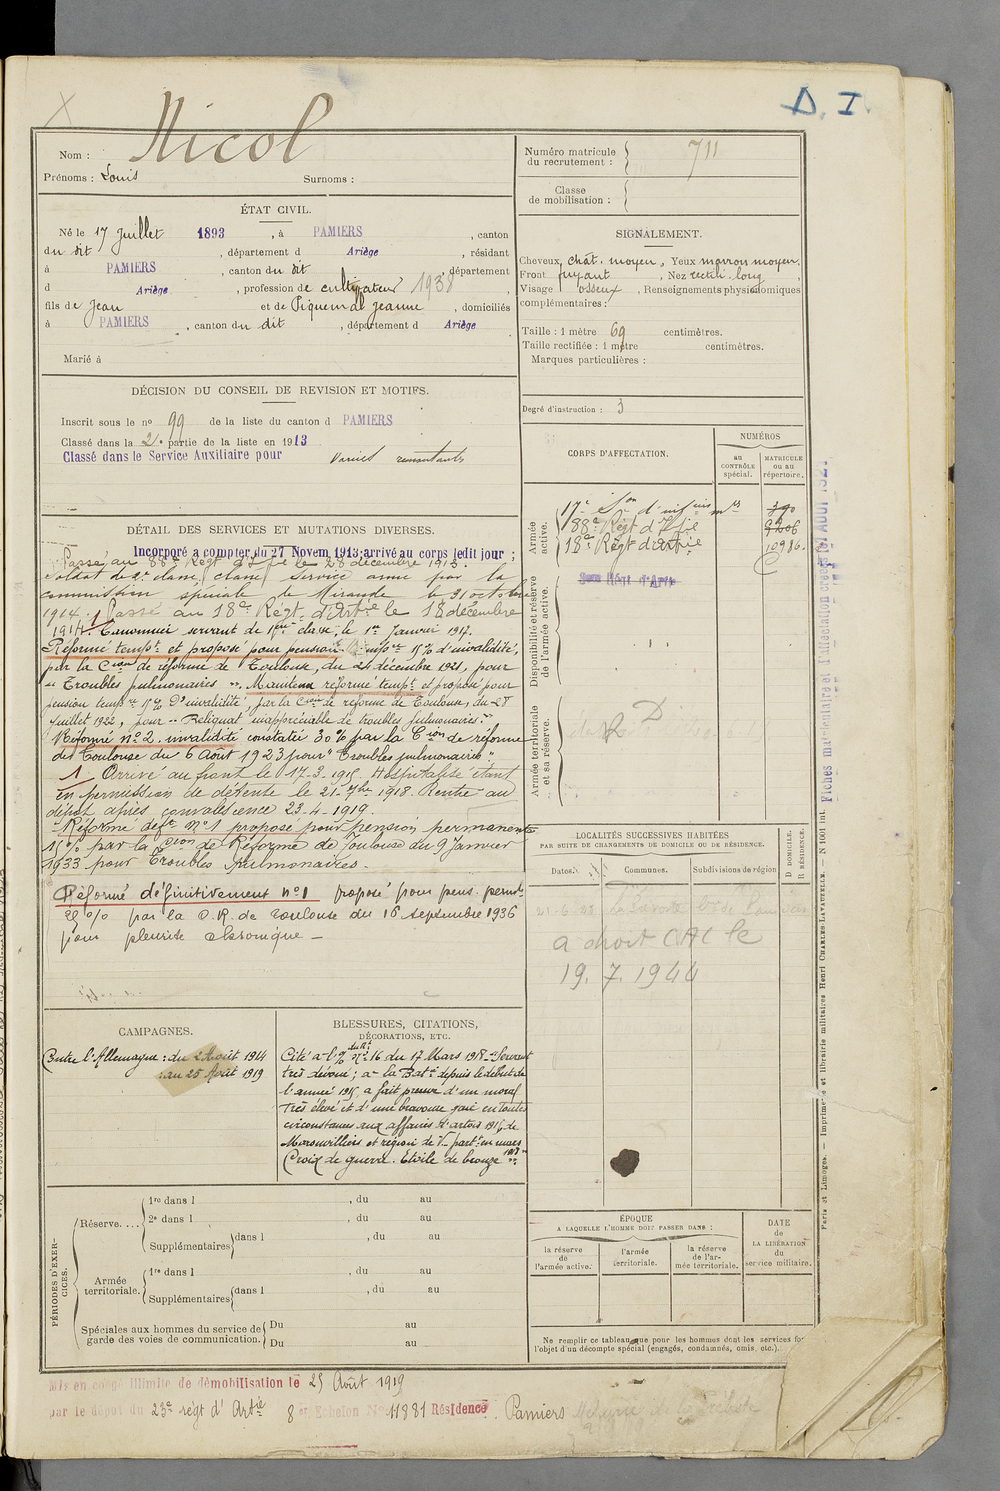 D. I.
Nicol
Nom :
Prénoms : Louis Surnoms :
ÉTAT CIVIL.
Né le 17 Juillet 1893, à PAMIERS, canton
du dit, département d Ariège, résidant
à PAMIERS, canton du dit, département
d Ariège, profession de cultivateur 1938,
fils de Jean et de Piquemal Jeanne, domiciliés
à PAMIERS, canton du dit, département d Ariège
Marié à
DÉCISION DU CONSEIL DE REVISION ET MOTIFS.
Inscrit sous le no 99 de la liste du canton d PAMIERS
Classé dans la 2e partie de la liste en 1913
Classé dans le Service Auxiliaire pour varices
DÉTAIL DES SERVICES ET MUTATIONS DIVERSES.
Incorporé a compter du 27 Novem 1913 arrivé au corps ledit jour ;
Passé au 88e Régt d'Ifie le 28 décembre 1913.
Soldat de 2e classe, classé service armé par la
commission spéciale de Mirande le 31 octobre
1914. 1 Passé au 18e Régt d'Artie le 18 décembre
1914. Canonnier servant de 1ère classe, le 1er Janvier 1917.
Réformé tempt et proposé pour pension tempre 15% d'invalidité,
par la Cion de réforme de Toulouse, du 24 décembre 1921, pour
" Troubles pulmonaires ". Maintenu réformé tempt et proposé pour
pension tempre 15% d'invalidité, par la Cion de réforme de Toulouse, du 28
Juillet 1922, pour " Reliquat inappréciable de troubles pulmonaires."
Réformé no 2. invalidité constatée 30% par la Cion de réforme
de Toulouse du 6 Août 1923 pour "Troubles pulmonaires".
1. Arrivé au front le 17.3.1915. Hospitalisé étant
en permission de détente le 21-7bre 1918. Rentré au
dépôt après convalescence 23-4-1919.
Réformé déft No 1 proposé pour pension permanente
15% par la Cion de Réforme de Toulouse du 9 Janvier
1933 pour Troubles pulmonaires.
Réformé définitivement no 1 proposé pour pens. permte
% par la C.R. de Toulouse du 16 septembre 1936
pour pleurite chronique
CAMPAGNES.
Contre l'Allemagne : du 2 Août 1914
: au 25 Août 1919
BLESSURES, CITATIONS,
DÉCORATIONS, ETC.
Cité à l'O/ du Rt No 16 du 17 Mars 1918 "Servant
très dévoué ; à la Batie depuis le début de
l'année 1915, a fait preuve d'un moral
très élevé et d'une bravoure gaie en toutes
circonstances aux affaires d'Artois 1915, de
Moronvilliers et région de V- part. en mars
Croix de guerre. Etoile de bronze 1918"
PÉRIODES D'EXERCICES.
Réserve....
1re dans l , du au
2e dans l , du au
Supplémentaires dans l , du au
Armée territoriale.
1re dans l , du au
Supplémentaires dans l , du au
Spéciales aux hommes du service de
garde des voies de communication.
Du au
Du au
Mis en congé illimité de démobilisation le 25 Août 1919
par le dépôt du 23e régt d'Artie 8e Echelon No 11881 Résidence Pamiers
Numéro matricule
du recrutement : 711
Classe
de mobilisation :
SIGNALEMENT.
Cheveux chât. moyen, Yeux marron moyen,
Front fuyant, Nez rectil. long,
Visage osseux, Renseignements physionomiques
complémentaires :
Taille : 1 mètre 69 centimètres.
Taille rectifiée : 1 mètre centimètres.
Marques particulières :
Degré d'instruction : 3
CORPS D'AFFECTATION.
NUMÉROS
au
CONTRÔLE
spécial.
MATRICULE
ou au
répertoire.
Armée active.
17e Son d'infirmrs 390
88e Régt d'Ifie 9206
18e Régt d'artie 10986.
Disponibilité et réserve de l'armée active.
Régt d'Artie
Armée territoriale et sa réserve.
D
LOCALITÉS SUCCESSIVES HABITÉES
PAR SUITE DE CHANGEMENTS DE DOMICILE OU DE RÉSIDENCE.
Dates. Communes. Subdivisions de région
D. DOMICILE.
R. RÉSIDENCE.
a droit CAC le
19. 7. 1944
ÉPOQUE
A LAQUELLE L'HOMME DOIT PASSER DANS :
la réserve
de
l'armée active.
l'armée
territoriale.
la réserve
de l'armée territoriale.
DATE
de
LA LIBÉRATION
du
service militaire.
Ne remplir ce tableau que pour les hommes dont les services
l'objet d'un décompte spécial (engagés, condamnés, omis, etc.).
Fiches matriculaire et d'affectation créées le AOUT 1921
Paris et Limoges. — Imprimerie et librairie militaires Henri CHARLES-LAVAUZELLE. — N 1001 int.